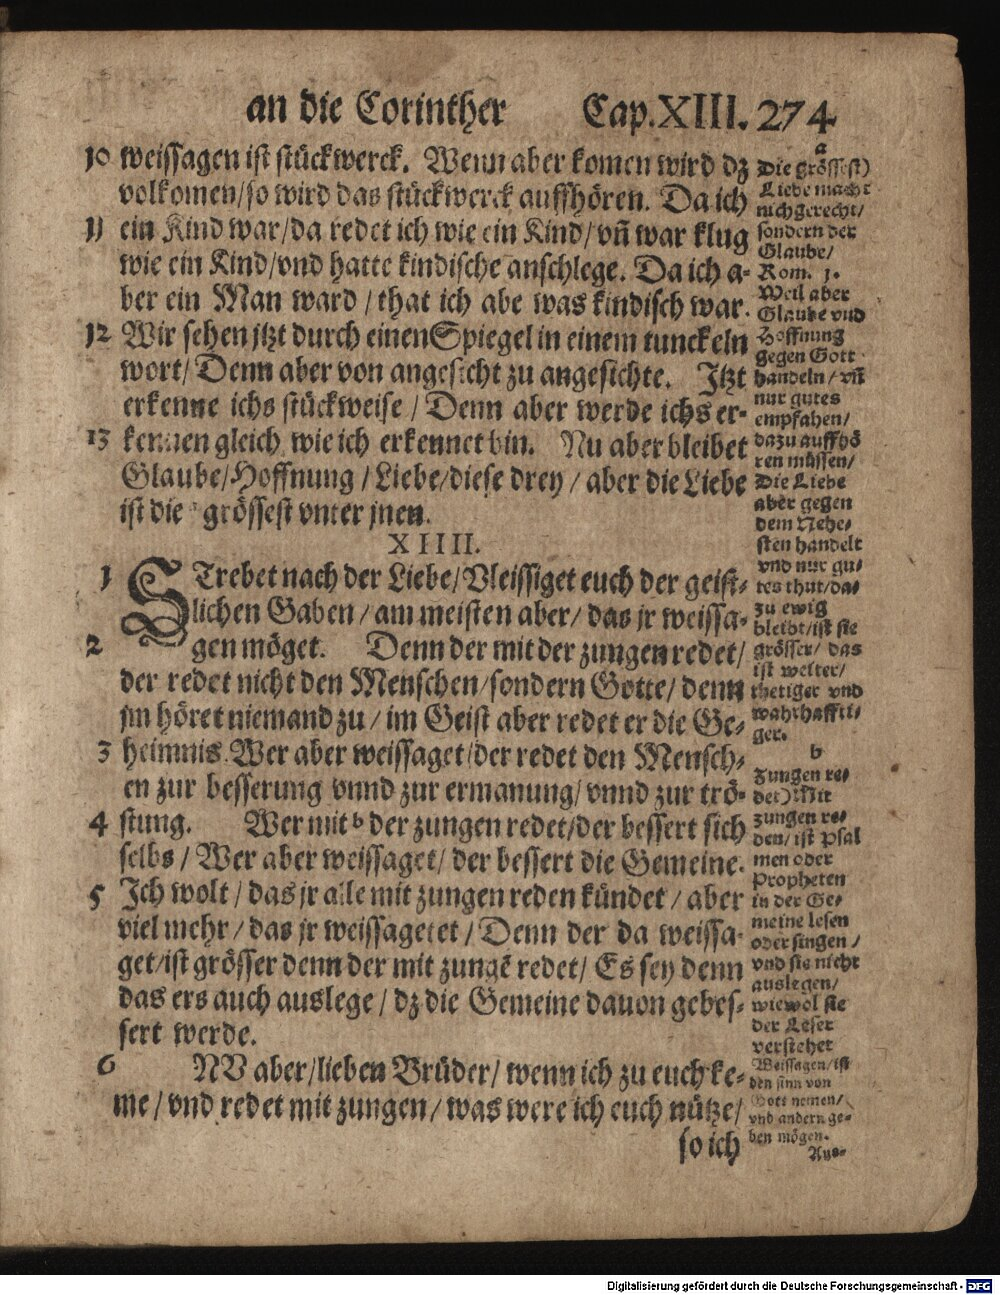 an die Corinther Cap. XIII. 274
10 weissagen ist stückwerck. Wenn aber komen wird dz
volkomen/so wird das stückwerck auffhören. Da ich
11 ein Kind war/da redet ich wie ein Kind/vñ war klug
wie ein Kind/vnd hatte kindische anschlege. Da ich a-
ber ein Man ward/that ich abe was kindisch war.
12 Wir sehen jtzt durch einen Spiegel in einem tunckeln
wort/Denn aber von angesicht zu angesichte. Jtzt
erkenne ichs stückweise/Denn aber werde ichs er-
13 kennen gleich wie ich erkennet bin. Nu aber bleibet
Glaube/Hoffnung/Liebe/diese drey/aber die Liebe
ist die a grössest vnter jnen.
XIIII.
1 STrebet nach der Liebe/Vleissiget euch der geist-
lichen Gaben/am meisten aber/das jr weissa-
2 gen möget. Denn der mit der zungen redet/
der redet nicht den Menschen/sondern Gotte/denn
jm höret niemand zu/im Geist aber redet er die Ge-
3 heimnis. Wer aber weissaget/der redet den Mensch-
en zur besserung vnnd zur ermanung/vnnd zur trö-
4 stung. Wer mit b der zungen redet/der bessert sich
selbs/Wer aber weissaget/der bessert die Gemeine.
5 Ich wolt/das jr alle mit zungen reden kündet/aber
viel mehr/das jr weissagetet/Denn der da weissa-
get/ist grösser denn der mit zungē redet/Es sey denn
das ers auch auslege/dz die Gemeine dauon gebes-
sert werde.
6 NV aber/lieben Brüder/wenn ich zu euch ke-
me/vnd redet mit zungen/was were ich euch nütze/
so ich
a
Die grössest)
Liebe macht
nich gerecht/
sondern der
Glaube/
Rom. 1.
Weil aber
Glaube vnd
Hoffnung
gegen Gott
handeln/vñ
nur gutes
empfahen/
dazu auffhö
ren müssen/
Die Liebe
aber gegen
dem Nehe-
sten handelt
vnd nur gu-
tes thut/da-
zu ewig
bleibt/ist sie
grösser/das
ist welter/
thetiger vnd
wahrhaffti-
ger.
b
Zungen re-
det) Mit
zungen re-
den/ist Psal
men oder
Propheten
in der Ge-
meine lesen
oder singen/
vnd sie nicht
auslegen/
wiewol sie
der Leser
verstehet
Weissagen/ist
den sinn von
Gott nemen/
vnd andern ge-
ben mögen.
Aus-
Digitalisierung gefördert durch die Deutsche Forschungsgemeinschaft - DFG